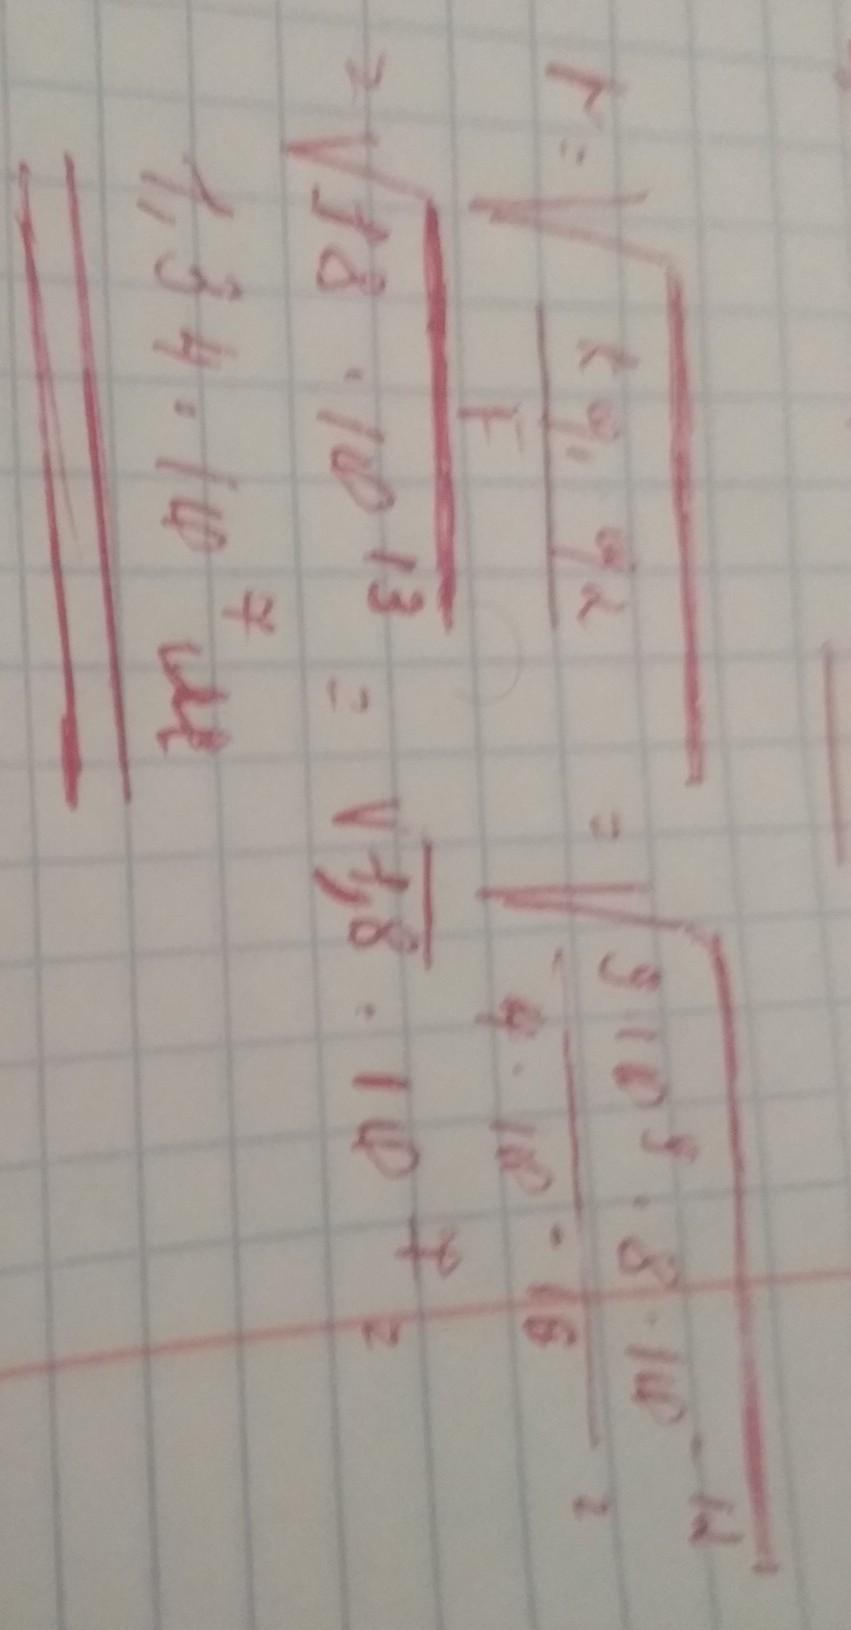 r = √(k q₁ q₂ / F) = √(9·10⁹ · 8·10⁻¹² / 4·10⁻¹⁶) =
= √(18 · 10¹³) = √1,8 · 10⁷ =
1,34 · 10⁷ м